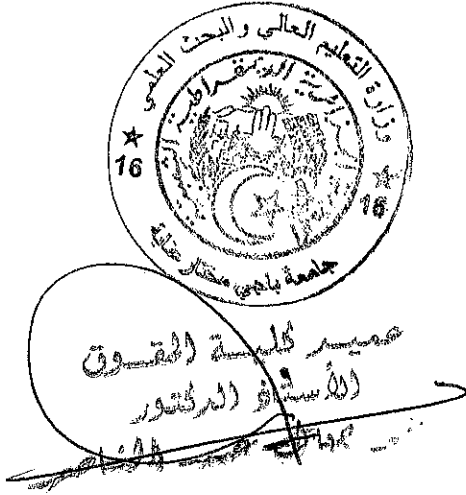 وزارة التعليم العالي والبحث العلمي
الجزائرية الديمقراطية الشعبية
16
16
جامعة باجي مختار عنابة
عميد كلية الحقوق
الأستاذ الدكتور